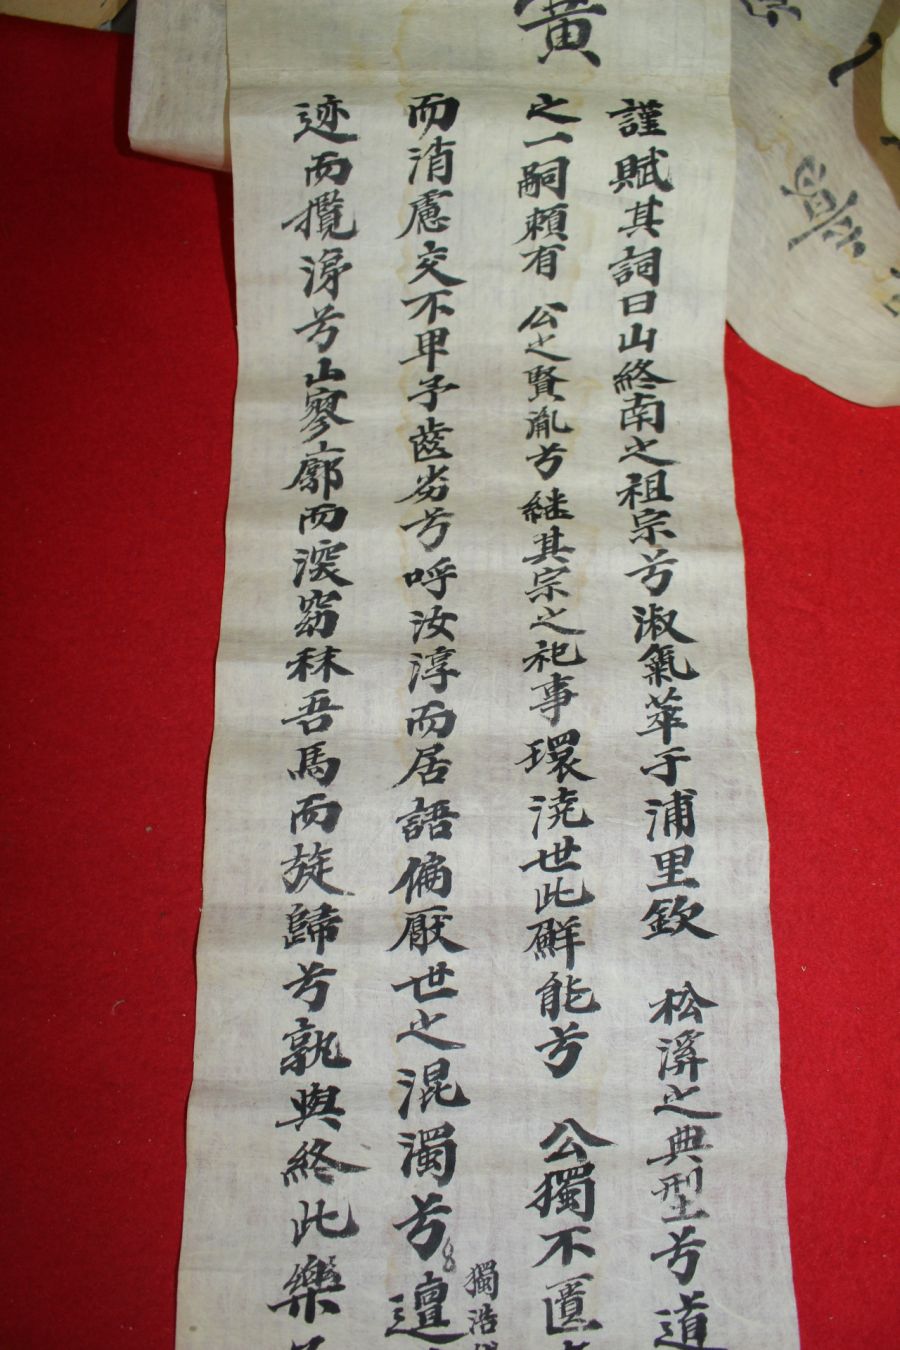 黃
謹賦其詞曰山終南之祖宗兮淑氣萃于浦里欽 松溪之典型兮道
之一嗣賴有 公之賢胤兮継其宗之祀事環澆世此鮮能兮 公獨不匱
而消慮交不甲子齒劣兮呼汝淳而居語偏厭世之混濁兮邅
獨浩
迹而攬涕兮山寥廓而深窈秣吾馬而旋歸兮孰與終此樂